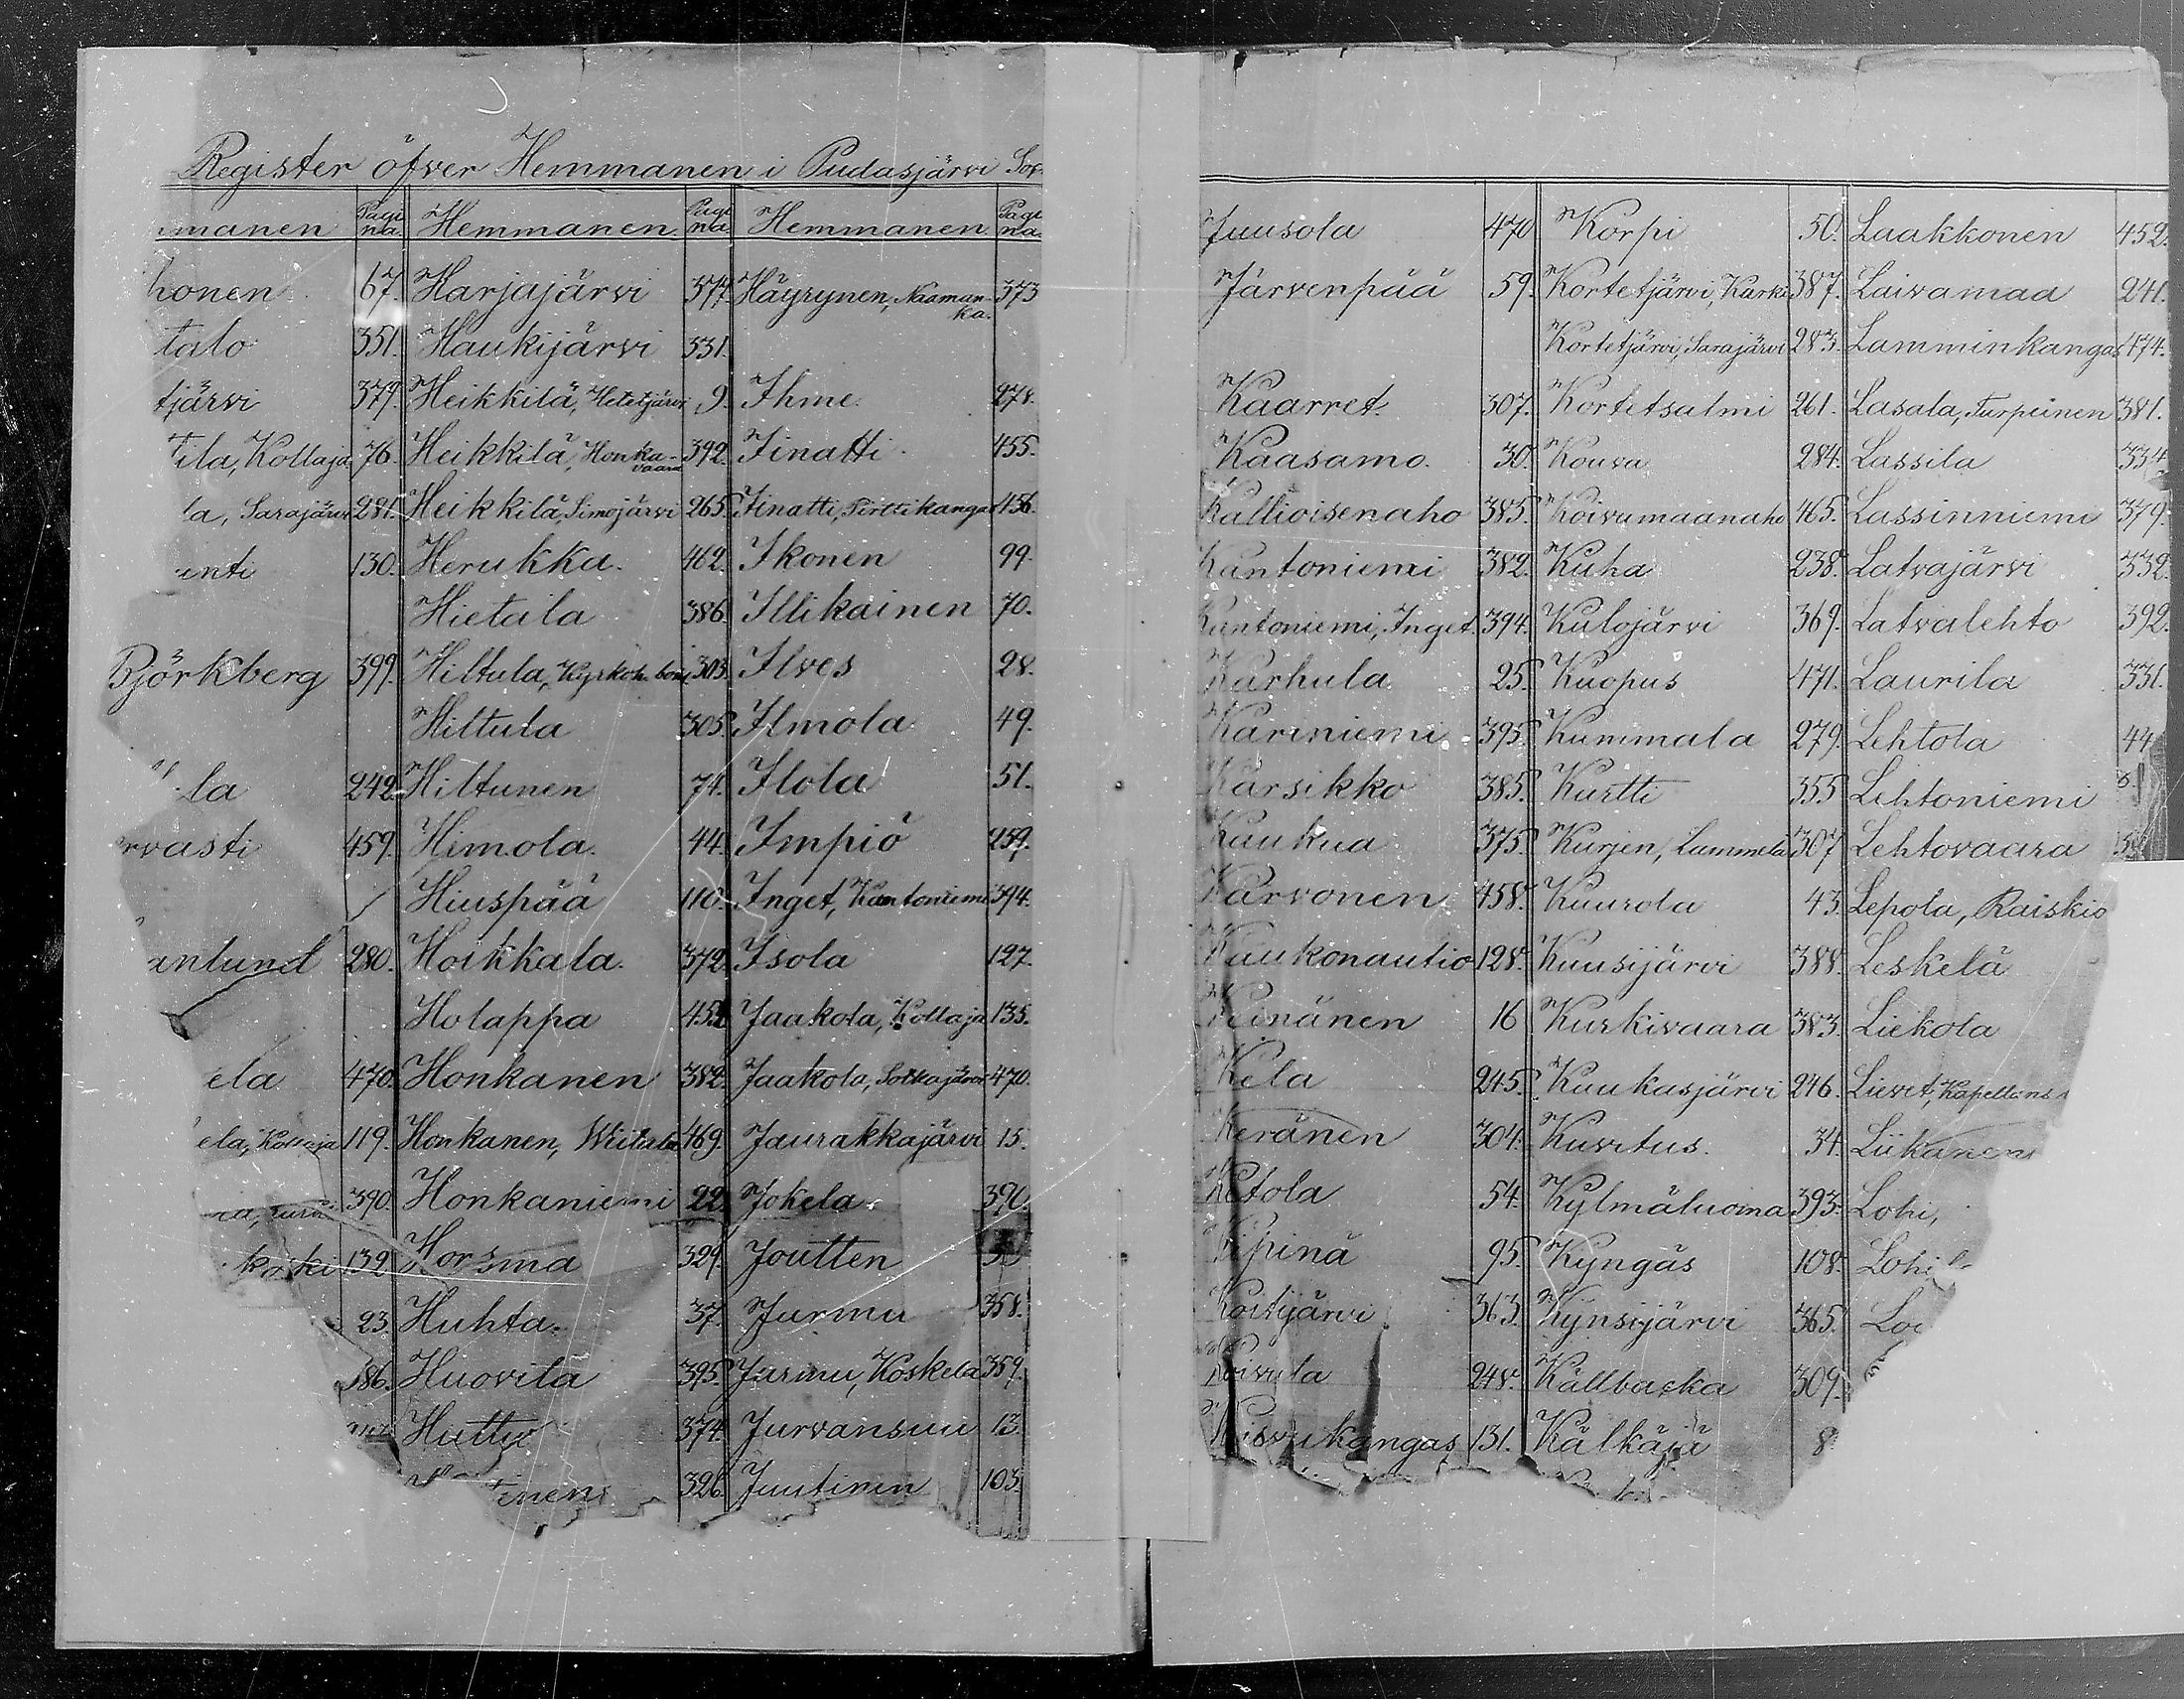 Register öfver Hemmanen i Pudasjärvi Soc
manen Pagina Hemmanen Pagina Hemmanen Pagina
honen 67. Harjajärvi 377. Häyrynen, Naamanka. 373
talo 351. Haukijärvi 331.
tjärvi 379. Heikkilä, Hetetjärvi 9. Ihme 278.
ila, Kollaja 76. Heikkilä, Honkavaara 392. Iinatti 455.
la, Sarajärvi 281. Heikkilä, Simojärvi 265. Iinatti, Pirttikangas 456.
enti 130. Herukka. 462. Ikonen 99.
Hietala 386. Illikainen 70.
Björkberg 399. Hiltula, Kyrkoh. bon. 303. Ilves 28.
Hiltula 305. Ilmola 49.
la 242. Hiltunen 74. Ilola 51.
rvasti 459. Himola. 44. Impiö 259.
Hiuspää 110. Inget, Kantoniemi 394.
antund 280. Hoikkala. 372. Isola 127.
Holappa 452 Jaakola, Kollaja 135.
ela 470. Honkanen 382. Jaakola, Sotkajärvi 470.
ela, Kollaja 119. Honkanen, Wiitala 469. Jaurakkajärvi 15.
390. Honkaniemi 22. Jokela. 390.
koski 132 Horsma 329. Joutten
23. Huhta. 37. Jurmu 358.
386. Huovila 395. Jurmu, Koskela 359.
Huttu 374. Jurvansuu 13.
enen 326. Juutinen 103.
Juusola 470 Korpi 50. Laakkonen 452.
Järvenpää 59. Kortetjärvi, Karki 387. Laivamaa 241.
Kortetjärvi, Sarajärvi 283. Lamminkangas 474.
Kaarret. 307. Kortetsalmi 261. Lasala, Turpeinen 381.
Kaasamo. 30. Kouva 284. Lassila 334
Kallioisenaho 385. Koivumaanaho 465. Lassinniemi 379.
Kantoniemi 382. Kuha 238. Latvajärvi 332.
Kantoniemi, Inget. 394. Kulojärvi 369. Latvalehto 392.
Karhula 25. Kuopus 471. Laurila 331.
Kariniemi 395. Kummala 279. Lehtola 44
Karsikko 385. Kurtti 355 Lehtoniemi
Kaukua 375. Kurjen, Lammela 307 Lehtovaara
Karvonen 458. Kuurola 43. Lepola, Raiskio
Kaukonautio 128. Kuusijärvi 388. Leskelä
Keinänen 16 Kurkivaara 383. Liekola
Kela 245. Kuukasjärvi 246. Lievet, Kapellans
Keränen 304. Kuvitus. 34. Liikanen
Ketola 54. Kylmäluoma 393. Lohi,
Kipinä 95. Kyngäs 108. Lohi
Koitijärvi 363. Kynsijärvi 365. Lo
Koivula 248. Källbacka 309.
Koivukangas 131. Kälkäjä 8